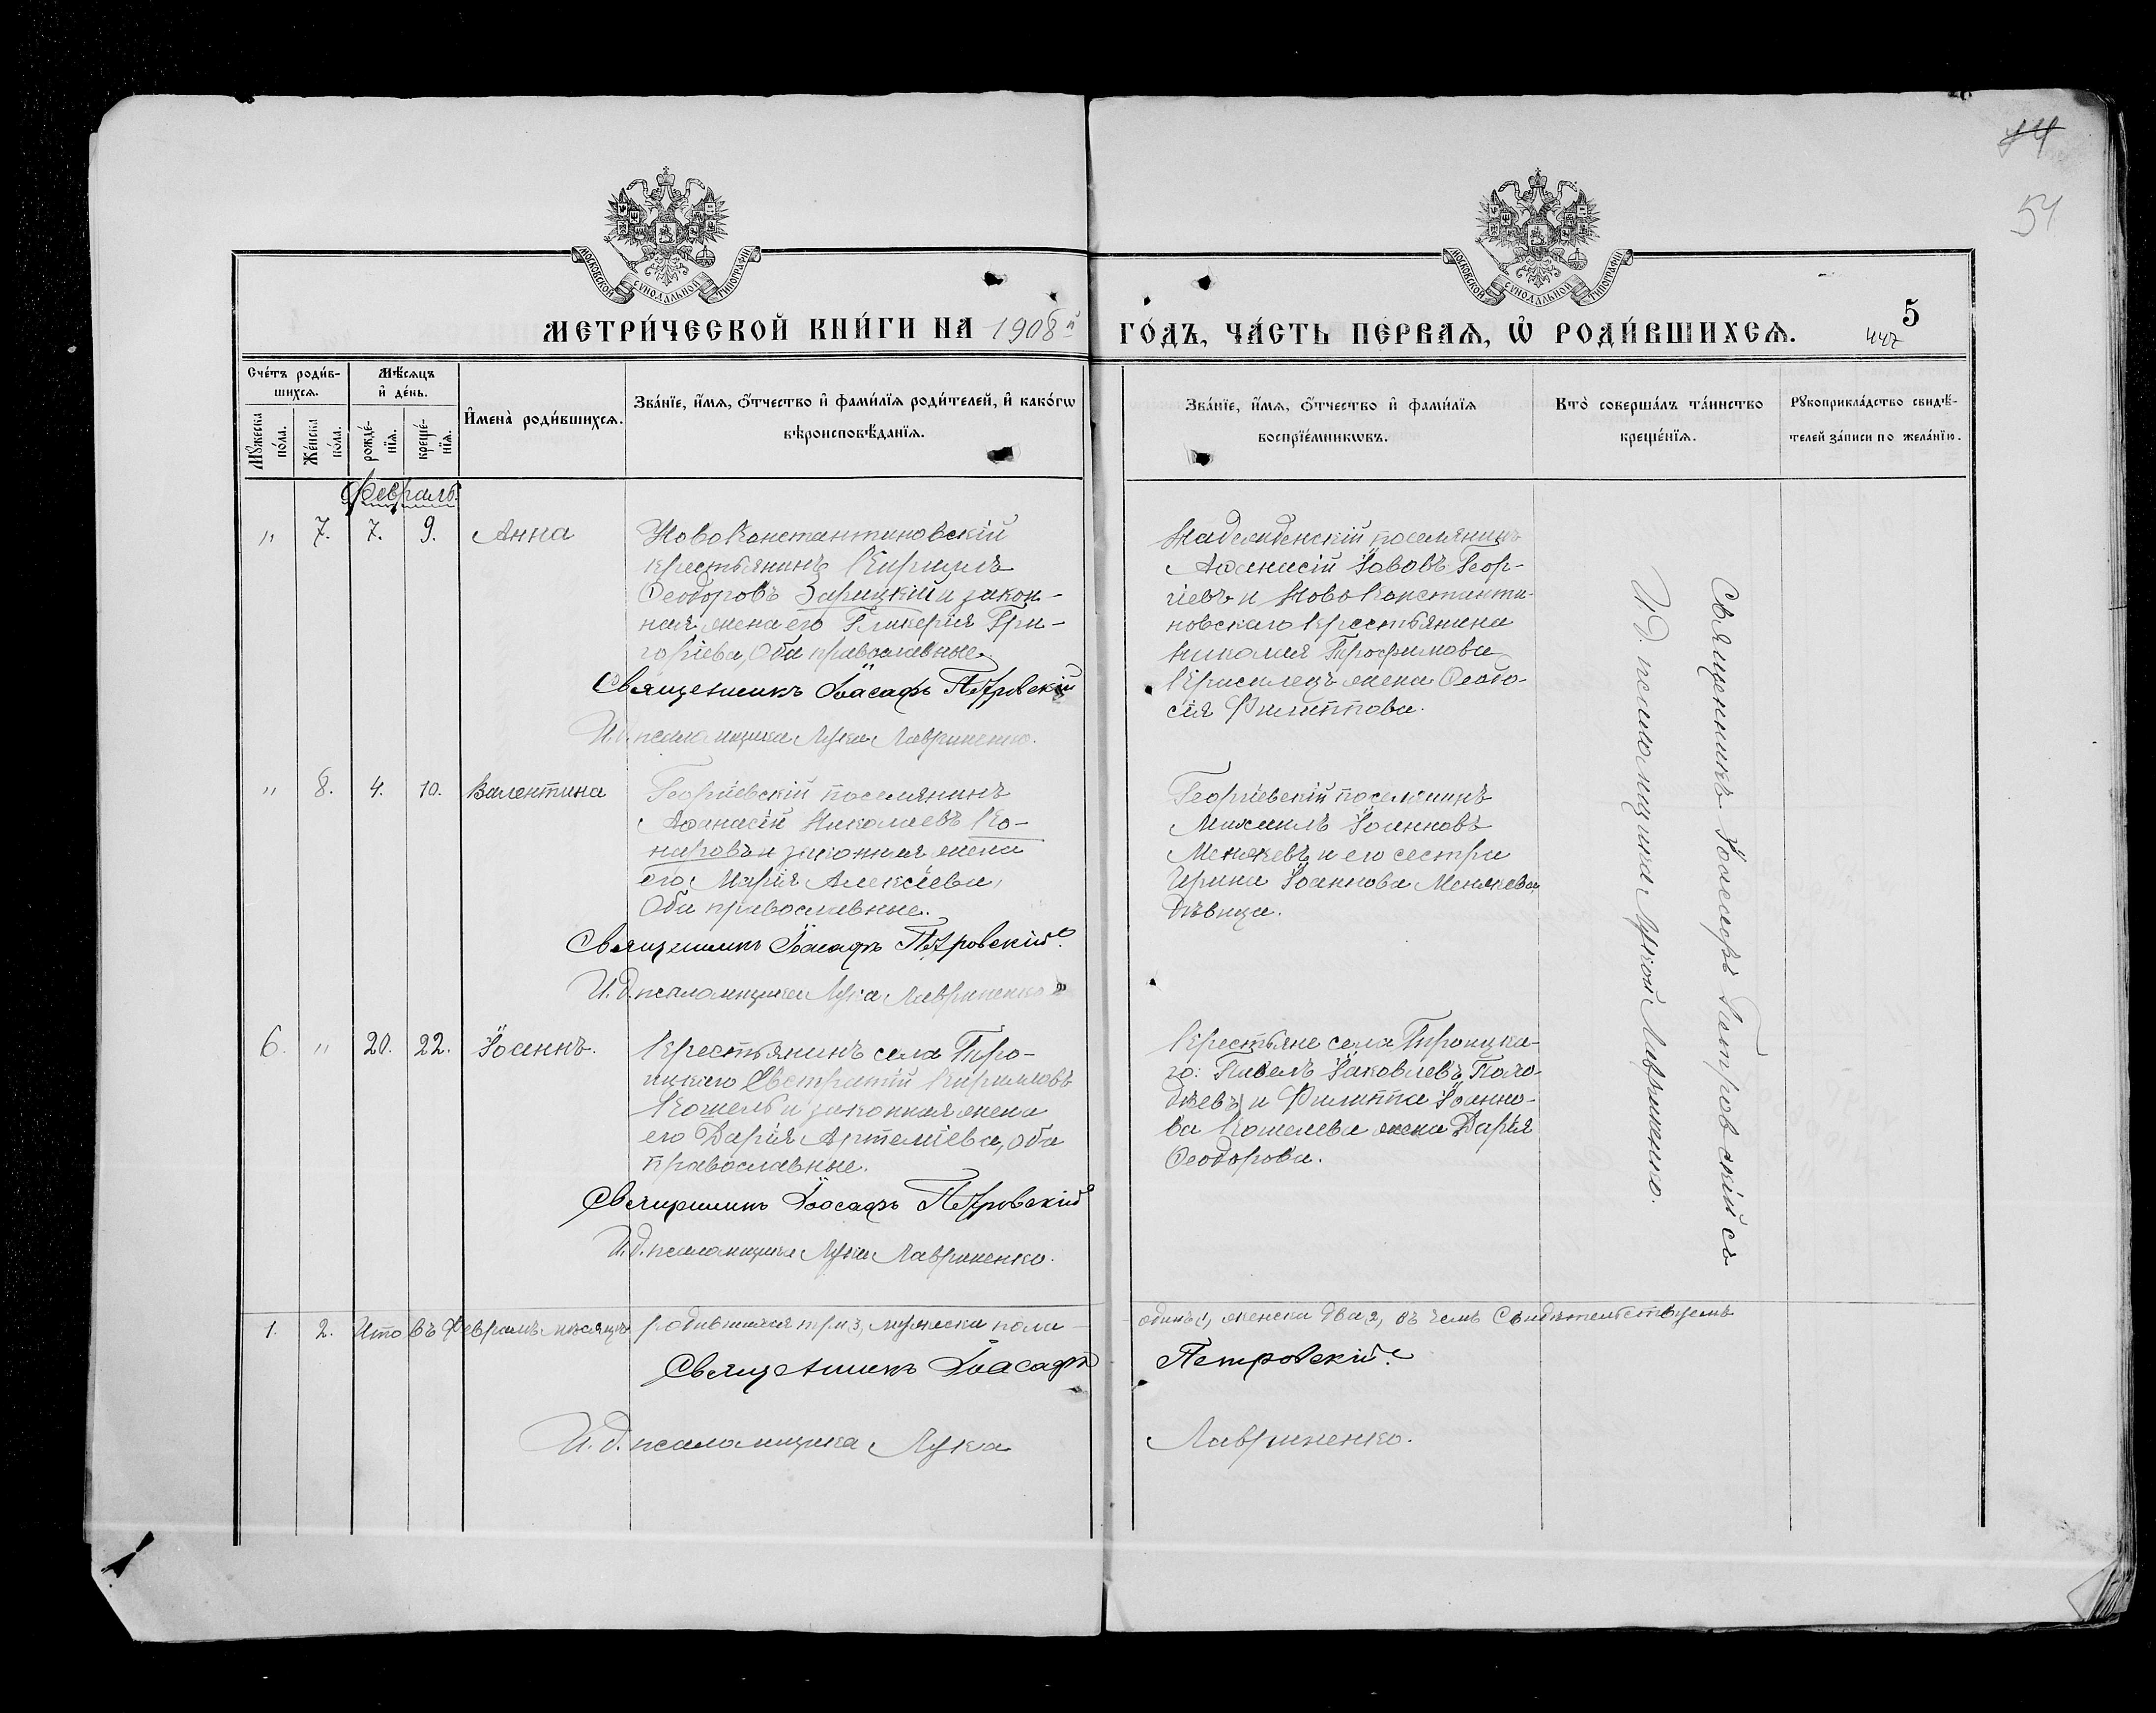 14
54
МОСКОВСКОЙ СѴНОДАЛЬНОЙ ТИПОГРАФІИ
МОСКОВСКОЙ СѴНОДАЛЬНОЙ ТИПОГРАФІИ
МЕТРИ́ЧЕСКОЙ КНИ́ГИ НА 1908й ГО́ДЪ, ЧА́СТЬ ПЕ́РВАѦ, Ѡ҆ РОДИ́ВШИХСѦ.
5
447
Сче́тъ роди́в-
шихсѧ.
Мꙋ́жеска по́ла.
Же́нска по́ла.
Мѣ́сѧцъ
и҆ де́нь.
рожде́-
нїѧ.
креще́-
нїѧ.
И҆мена̀ роди́вшихсѧ.
Зва́нїе, и҆́мѧ, ѻ҆́тчество и҆ фами́лїѧ роди́телей, и҆ како́гѡ
вѣроисповѣ́данїѧ.
Зва́нїе, и҆́мѧ, ѻ҆́тчество и҆ фами́лїѧ
воспрїе́мникѡвъ.
Кто̀ соверша́лъ та́инство
креще́нїѧ.
Рꙋкоприкла́дство свидѣ́-
телей за́писи по жела́нїю.
Февраль.
" 7. 7. 9. Анна
НовоКонстантиновскій
крестьянинъ Кириллъ
Ѳеодоровъ Зарицкій и закон-
ная жена его Гликерія Гри-
горіева, Оба православные.
Священникъ Іоасафъ Петровскій
И. д. псаломщика Лука Лавриненко.
Надежденскій поселянинъ
Аѳанасій Іововъ Геор-
гіевъ и НовоКонстанти-
новскаго Крестьянина
Николая Трофимова
жена Ѳеодо-
сія Филиппова.
" 8. 4. 10. Валентина
Георгіевскій поселянинъ
Аѳанасій Николаевъ Ко-
наровъ и законная жена
его Марія Алексіева,
Оба православные.
Священникъ Іоасафъ Петровскій.
И. д. псаломщика Лука Лавриненко
Георгіевскій поселянинъ
Михаилъ Іоанновъ
Менжевъ и его сестра
Ирина Іоаннова Менжева
Дѣвица.
6. " 20. 22. Іоаннъ.
Крестьянинъ села Тро-
ицкаго Евстратій Кирилловъ
Кошель и законная жена
его Дарія Артеміева, оба
православные.
Священникъ Іоасафъ Петровскій
И. д. псаломщика Лука Лавриненко.
Крестьяне села Троицка-
го: Павелъ Іаковлевъ
и Филиппа Іоанно-
ва Кошелева жена Дарія
Ѳеодорова.
Священникъ Іоасафъ Петровскій съ
И. д. псаломщика Лукой Лавриненко.
1. 2. Итого въ Февралѣ мѣсяцѣ родившихся три 3, мужеска пола – одинъ 1, женска два 2, въ чемъ Свидѣтельствуемъ
Священникъ Іоасафъ Петровскій.
И. д. псаломщика Лука Лавриненко.